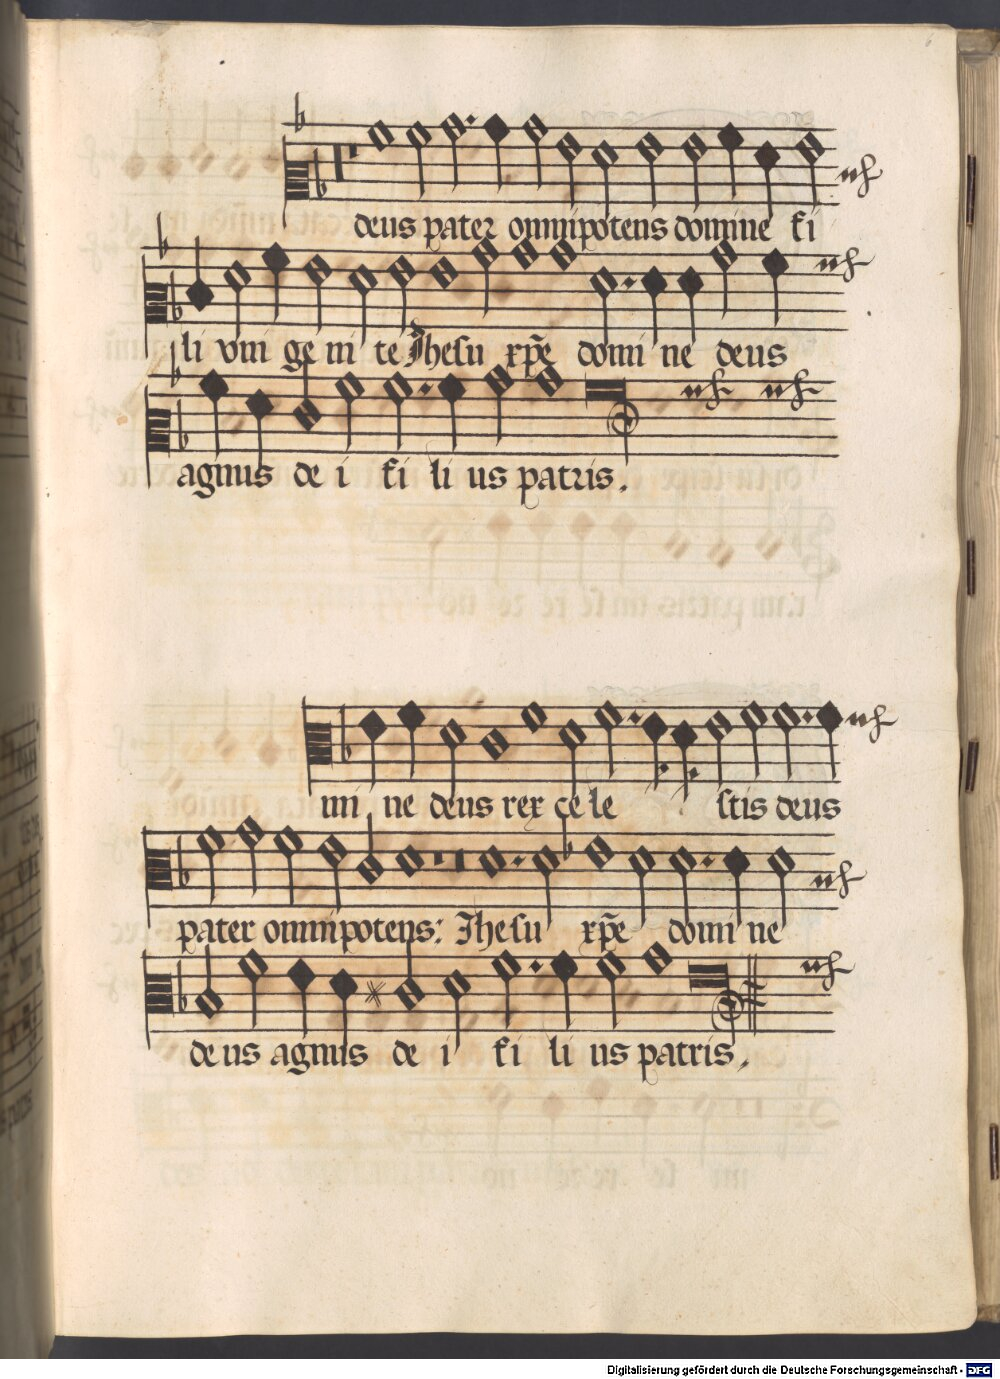 6
deus pater omnipotens domine fi
li vni ge ni te Jhesu xp̄e domi ne deus
agnus de i fi li us patris.
mi ne deus rex ce le stis deus
pater omnipotens: Jhesu xp̄e domi ne
de us agnus de i fi li us patris.
Digitalisierung gefördert durch die Deutsche Forschungsgemeinschaft - DFG